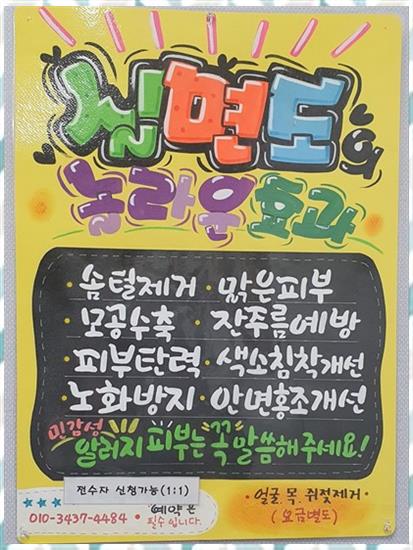 실면도의
놀라운 효과
· 솜털제거 · 맑은피부
· 모공수축 · 잔주름예방
· 피부탄력 · 색소침착개선
· 노화방지 · 안면홍조개선
민감성
알러지 피부는 꼭 말씀해주세요!
전수자 신청가능(1:1)
· 얼굴, 목, 쥐젖제거 ·
(요금별도)
★★★ · 예약은
010-3437-4484 · 필수입니다.